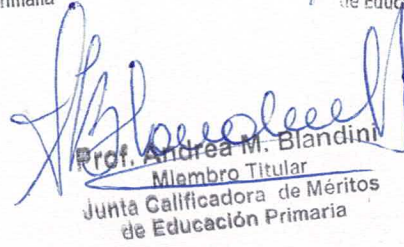 de Educ
Prof. Andrea M. Blandini
Miembro Titular
Junta Calificadora de Méritos
de Educación Primaria